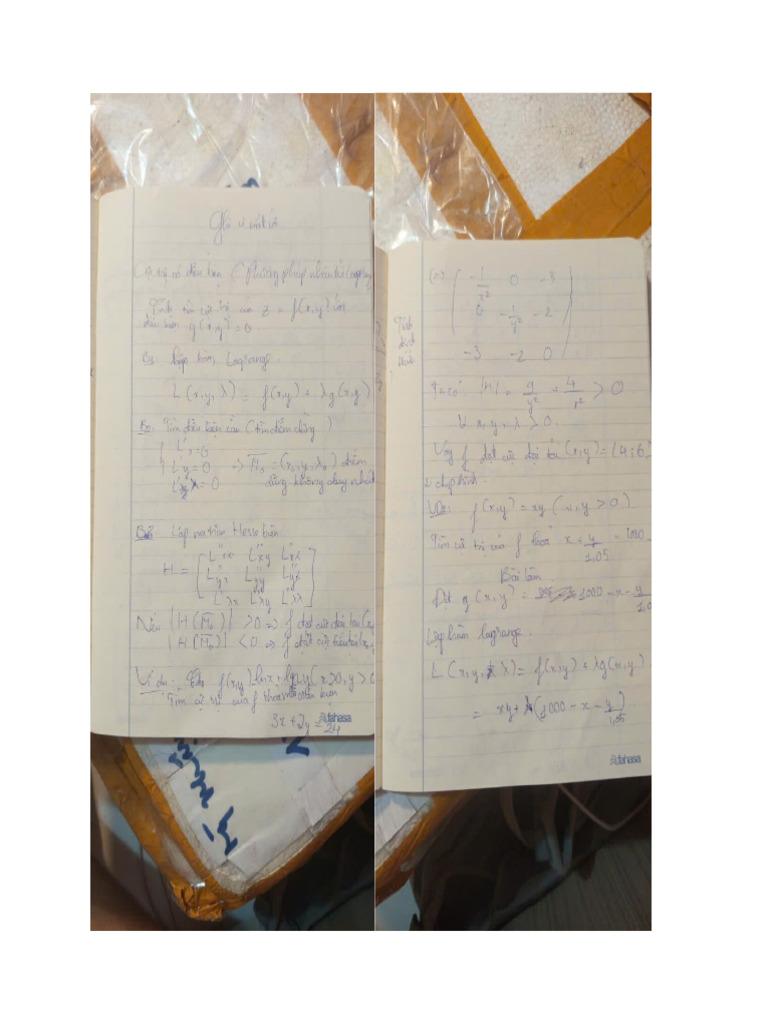 Cực trị có điều kiện (Phương pháp nhân tử Lagrange
tìm cực trị của z = f(x,y) với
điều kiện g(x,y) = 0
B1: Lập hàm Lagrange
L(x,y,λ) = f(x,y) + λg(x,y)
Tìm điều kiện cần (tìm điểm dừng)
L'x = 0
L'y = 0 => M0 = (x0, y0, λ0) điểm
L'λ = 0 dừng không duy nhất
Lập ma trận Hesse biên
H = [ L''xx L''xy L''xλ
L''yx L''yy L''yλ
L''λx L''λy L''λλ ]
Nếu |H(M0)| > 0 => f đạt cực đại tại (x0
|H(M0)| < 0 => f đạt cực tiểu tại (x0
Ví dụ: Cho f(x,y) = lnx + lny (x>0, y>0
Tìm cực trị của f thỏa mãn điều kiện
3x + 2y = 24
fahasa
( -1/x² 0 -3
0 -1/y² -2
-3 -2 0 )
Tính
định
thức
Ta có: |H| = 9/y² + 4/x² > 0
∀ x, y, λ > 0.
Vậy f đạt cực đại tại (x,y) = (4;6)
VD2: f(x,y) = xy (x,y > 0)
Tìm cực trị của f thoả x + y/1,05 = 1000
Bài làm
Đặt g(x,y) = 1000 - x - y/1,0
Lập hàm lagrange.
L(x,y,λ) = f(x,y) + λg(x,y)
= xy + λ(1000 - x - y/1,05)
fahasa